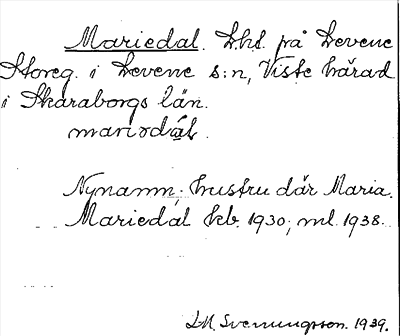 Mariedal. Lhl. på Levene
Storeg. i Levene s:n, Viste härad
i Skaraborgs län.
mariədál.
Nynamn; hustru där Maria.
Mariedal kb. 1930; ml. 1938.
L.M. Svenungsson. 1939.